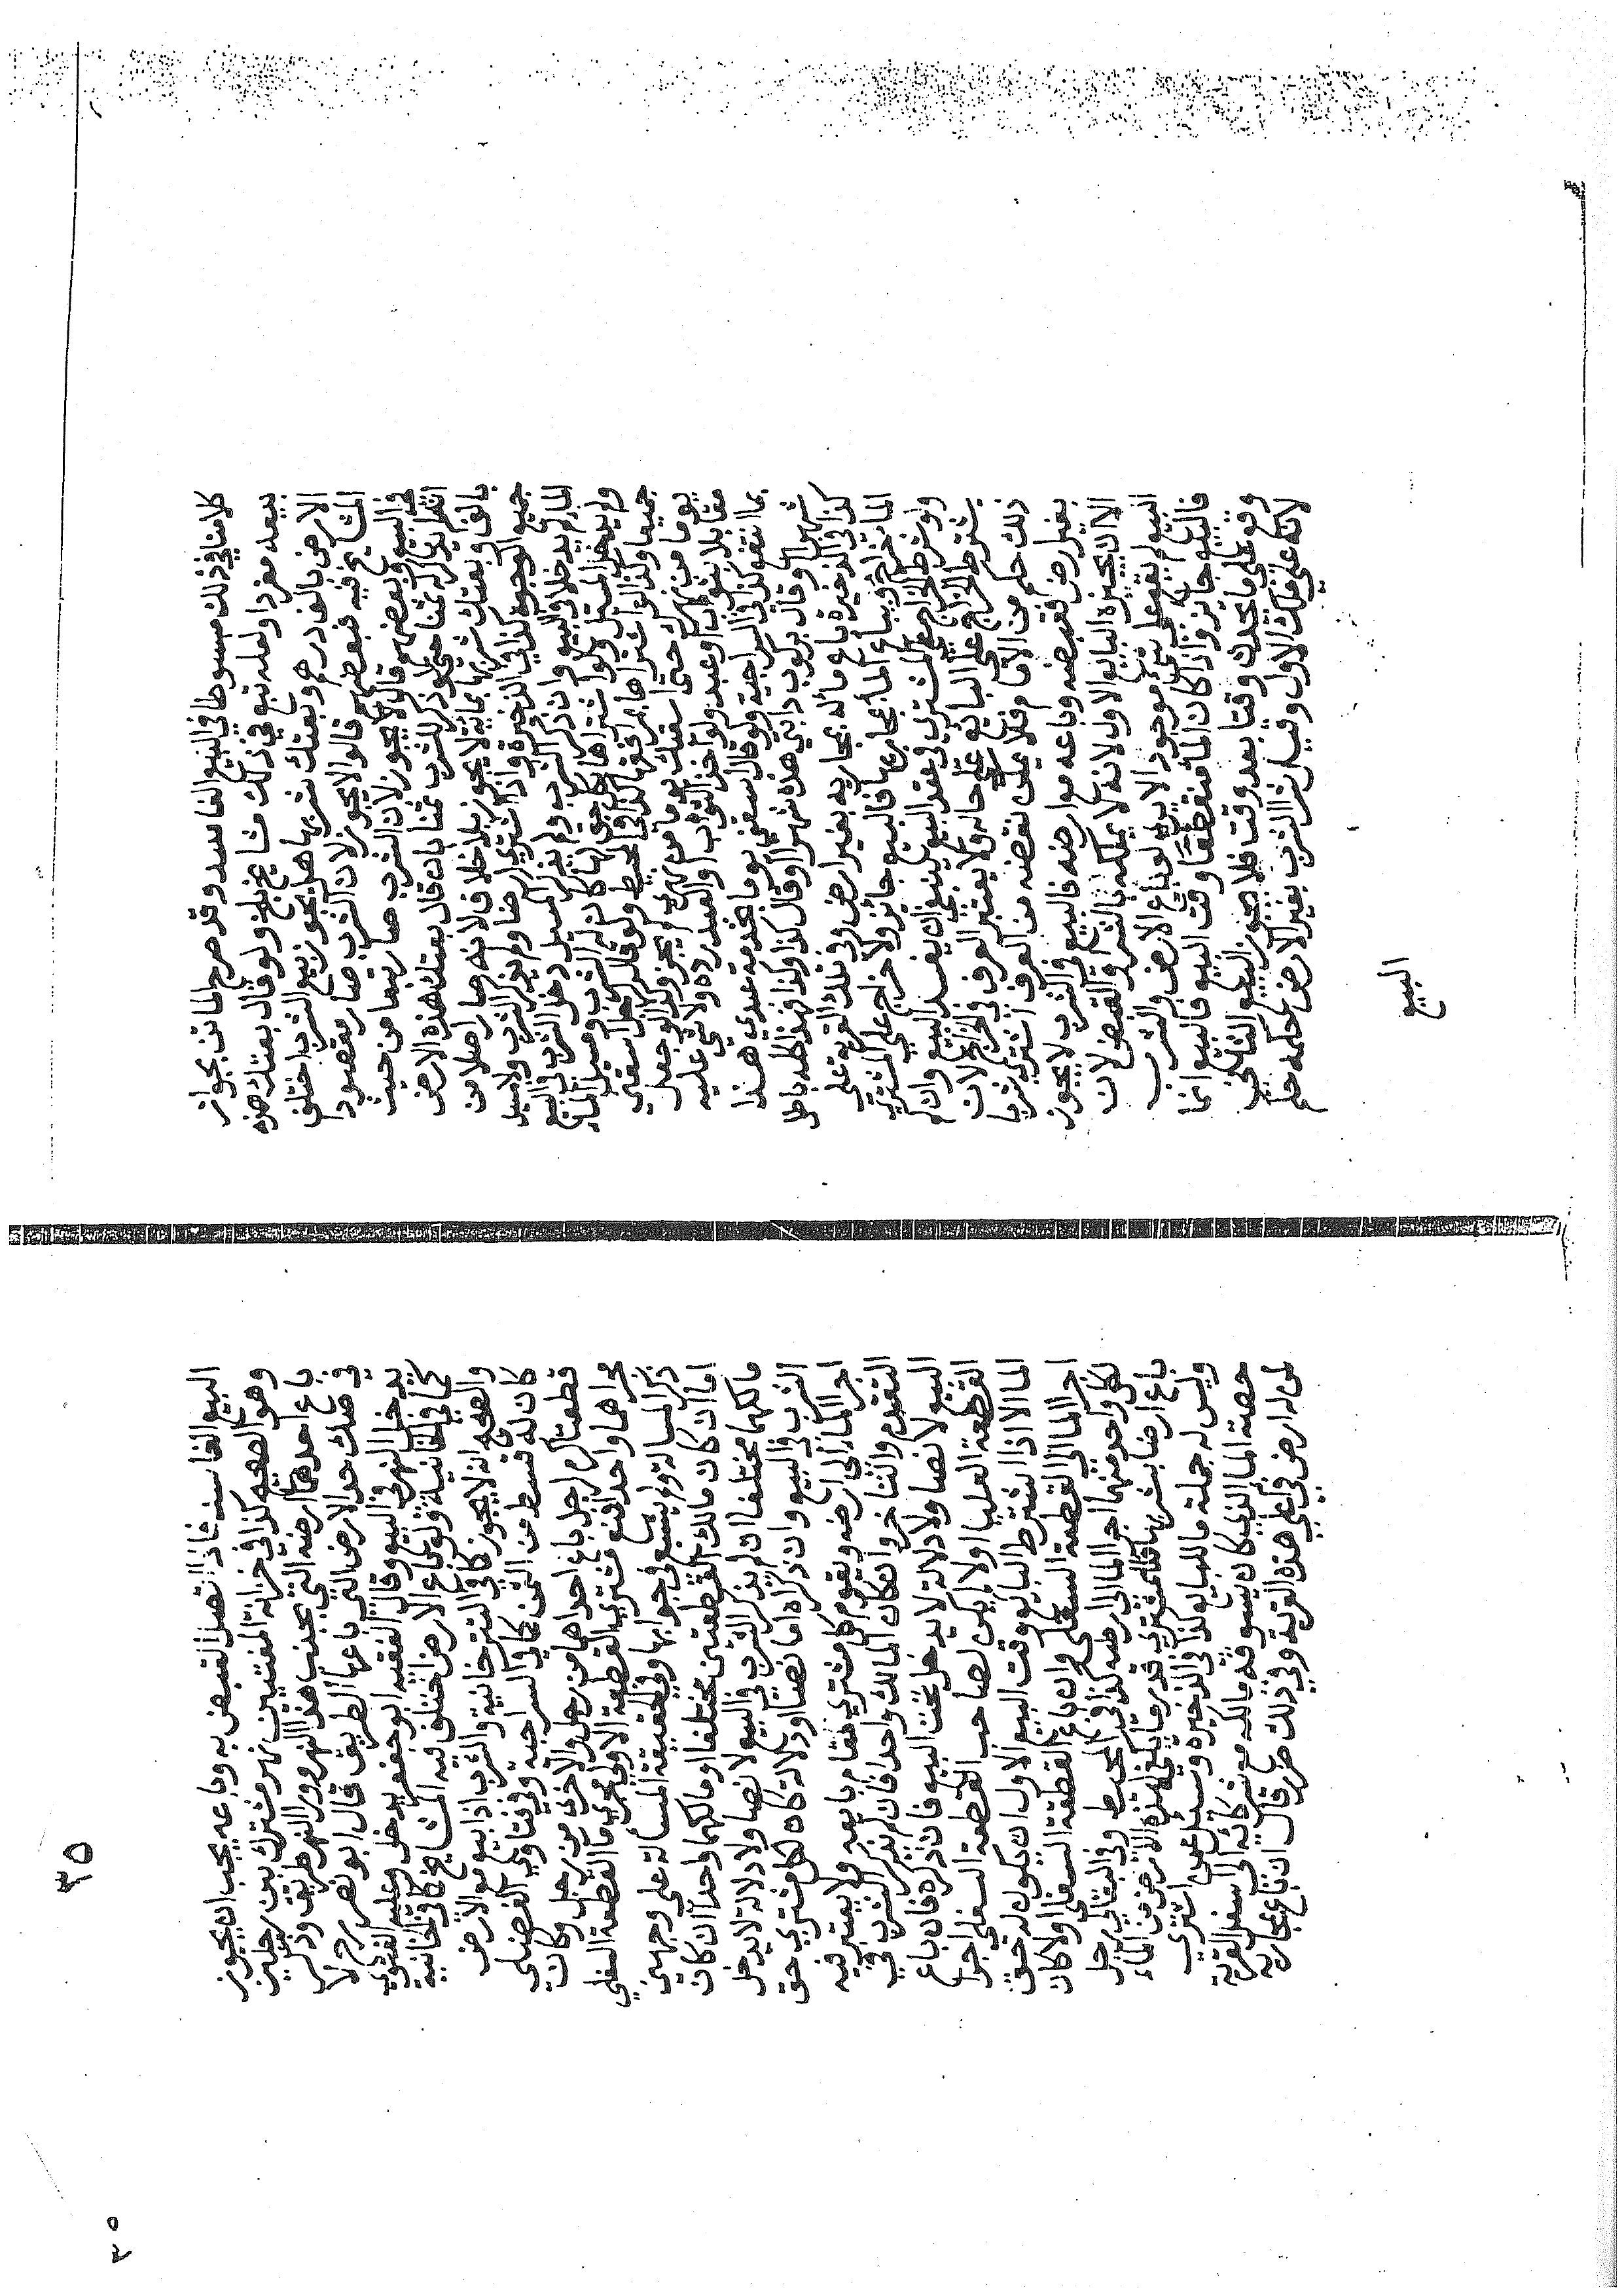 كلامنا في ذلك مبسوطا في البيع الفاسد وقد صرح لماتن بجواز
بيعه مفردا ولعله تبع في ذلك مشايخ بلخ ولو قال بعتك هذه
الارض بالف درهم وبعتك شربها هل يجوز بيع الشرب اختلف
المشايخ فيه فبعضهم قالوا لا يجوز لان الشرب صار مقصودا
في البيع وبعضهم قالوا لا يجوز لان الشرب صار تبعا من حيث
انه لم يذكر له ثمنا حتى لو ذكر للشرب ثمنا بان قال بعتك هذه الارض
بالف وبعتك شربها بمائة لا يجوز بلا خلاف لانه صار اصلا من
جميع الوجوه كذا في الذخيرة واذا اشترى ارضا ولم يذكر الشرب ولا مسيل
الماء لم يدخلا في البيع وان ذكر الشرب ولم يذكر المسيل دخل الشرب في البيع
ولم يدخل المسيل ولو اشتراها بكل حق لها كان له الشرب ومسيل الماء
جميعا وكذا لو اشتراها بمرافقها كذا في المحيط ولو قال لرجل اسقني
يوما من نهرك حتى اسقيك يوما من نهري لم يجز وكذا لو جعل
مقابلا بثوب او عبد ولو اخذ الثوب او العبد رده ولا شيء عليه
بما انتفع كذا في السراجية ولو قال اسقني يوما بخدمة عبدي هذا
شهرا او قال بركوب دابتي هذه شهرا او قال كذا وكذا فهذا كله باطل
كذا في الذخيرة باع ماء له بمجاريه بغير ارض وفي تلك القرية على
الماء خراج ويباع الماء بمجاريها فالبيع جائز ولا خراج على المشتري
ولو شرط الخراج على المشتري في عقد البيع ينبغي ان يفسد البيع وان لم
يشترط فالخراج على البايع على حاله ولا يعتبر العرف في الخراج لان
ذلك حكم من الامام فلا يملك نقضه من العرف اشترى شربا
بغير ارض فقبضه وباعه مع ارضه فالبيع في الشرب لا يجوز
الا ان يجيزه البايع الاول لانه لا يملكه بالشراء والقبض لان
البيع لم يقع على شيء موجود الا يرى لو باع الارض والشرب
فالبيع جائز واذا كان الماء منقطعا وقت البيع فالبيع انما
وقع على ما يحدث وقتا بعد وقت فلا يجوز البيع الثاني
لانه على ملك الاول وقيل شراء الشرب بغير الارض حكمه حكم
البيع
البيع الفاسد فاذا اتصل القبض به وباعه يجب ان يجوز
وهو الصحيح كذا في خزانة المفتيين نهر مشترك بين رجلين
باع احدهما ارضه التي بجنب هذا النهر وراء النهر طريق وذكر
في صك حد الارض التي باعها الطريق قال ابو نصر رح لا
يدخل النهر في البيع وقال الفقيه ابو جعفر يدخل وعليه الفتوى
كما في الخانية ولو باع الارض اختلف فيه المشايخ كما في الخانية
والصحيح انه لا يجوز كما في التترخانية والشرب اذا بيع مع الارض
كان له قسط من الثمن كما في السراجية وفي فتاوى الفضلى
قطعتا كرم لرجل باع احداهما من رجل والاخرى من رجل وكان
مجراهما واحدا فمنع مشتري القطعة الاولى مجرى ماء القطعة السفلى
ذكر المسالة ولم يشبع في جوابها وفي الحقيقة المسالة على وجهين
اما ان كان مالك القطعتين مختلفا او مالكهما واحدا ان كان
مالكهما مختلفا ان لم يذكر الشرب في البيع لا نصا ولا دلالة لا يدخل
الشرب في البيع وان ذكراه اما نصا او دلالة كان لكل مشتري حق
اجراء الماء الى ارضه ويقوم كل مشتري مقام بايعه ولا يعتبر فيه
التقدم والتاخر وان كان المالك واحدا فان لم يذكر الشرب في
البيع لا نصا ولا دلالة لا يدخل تحت البيع فان ذكره فان باع
القطعة العليا اولا لم يكن لصاحب القطعة السفلى اجراء
الماء الا اذا اشترط البايع وقت البيع الاول ان يكون له حق
اجراء الماء الى القطعة السفلى وان باع القطعة السفلى اولا كان
لكل واحد منهما اجراء الماء الى ارضه كذا في المحيط وفي البقالي رجل
باع ارضا بشربها فللمشتري قدر ما يكفي هذه الارض من الماء
وليس له جملة ما للبايع كذا في الذخيرة وسئل عمن اشترى
حصة الماء الذي كان يسوقه مالكه مع شركائه الى اسفل القرية
لمن له ارض في اعلى هذه القرية وفي ذلك ضرر قال ان باع بمجاريه
٣٥
٣٥